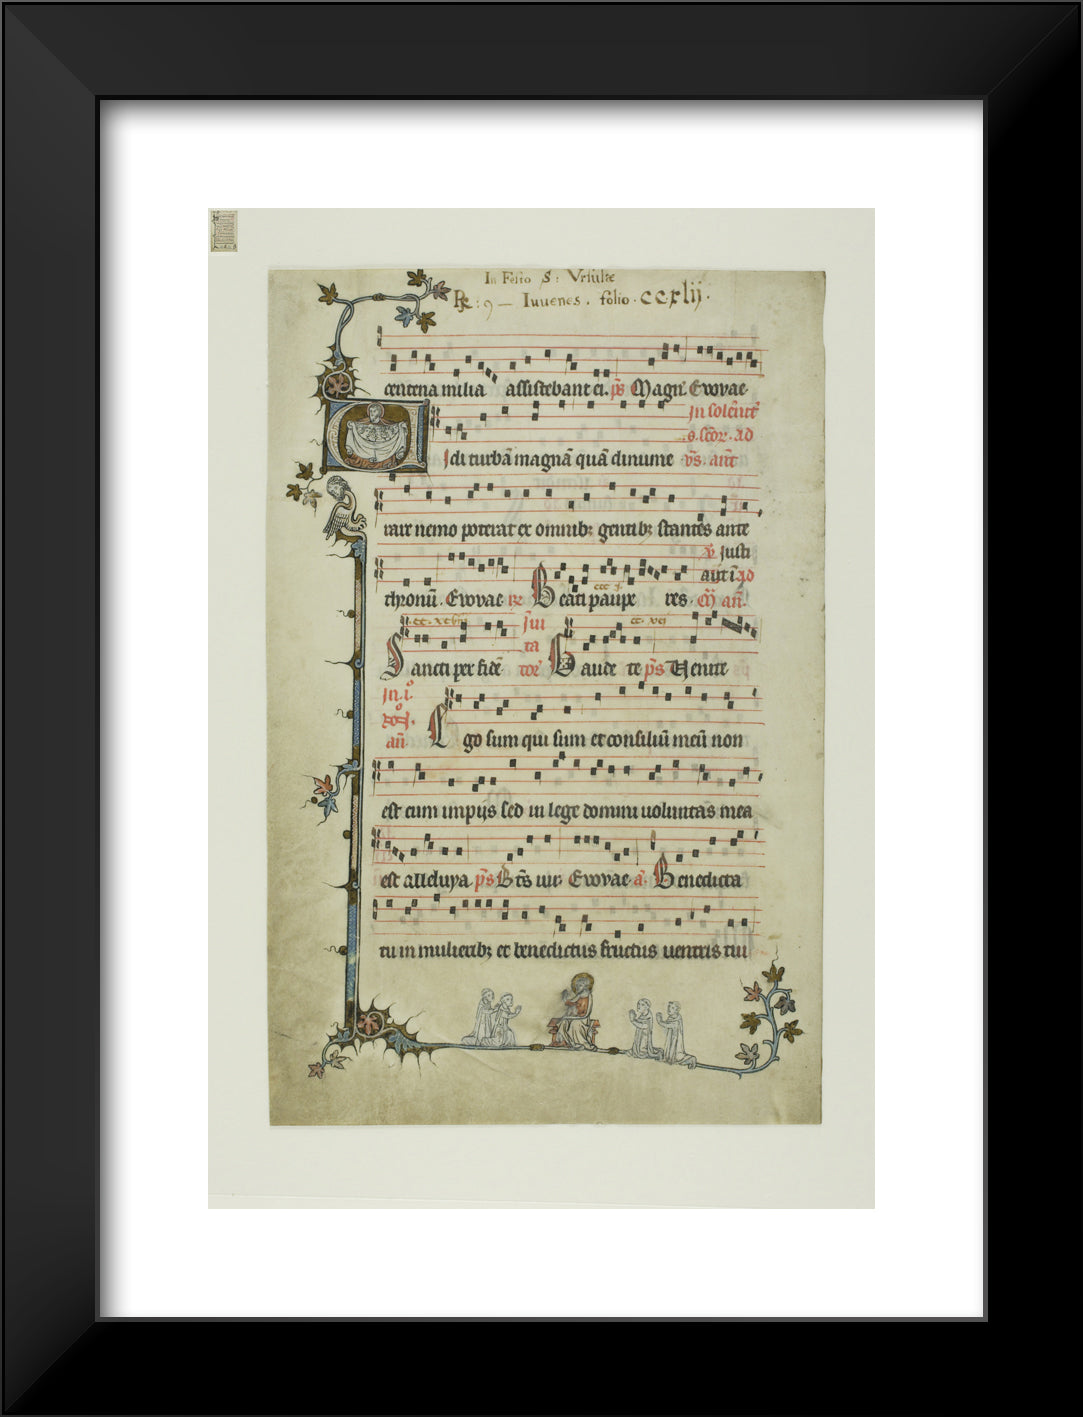 In Festo S: Vrsulæ
℞: 9 — Iuuenes. folio. ccxlij.
centena milia assistebant ei. p̄s Magn̄. Evovae
In solēnit̄
o. scōr. ad
Uidi turbā magnā quā dinume vs̄. aūt
rare nemo poterat ex omnib; gentib; stantes ante
v̄ Justi
aūt ī ad
thronū. Evovae Beati paupe res. aā.
Jnui
ta
Sancti per fidē tor̄ Gaude te p̄s Venite
In .i.o
an̄ Ego sum qui sum et consiliū meū non
est cum impijs sed in lege domini uoluntas mea
est alleluya p̄s B̄ts uir Evovae a. Benedicta
tu in mulierib; et benedictus fructus uentris tui